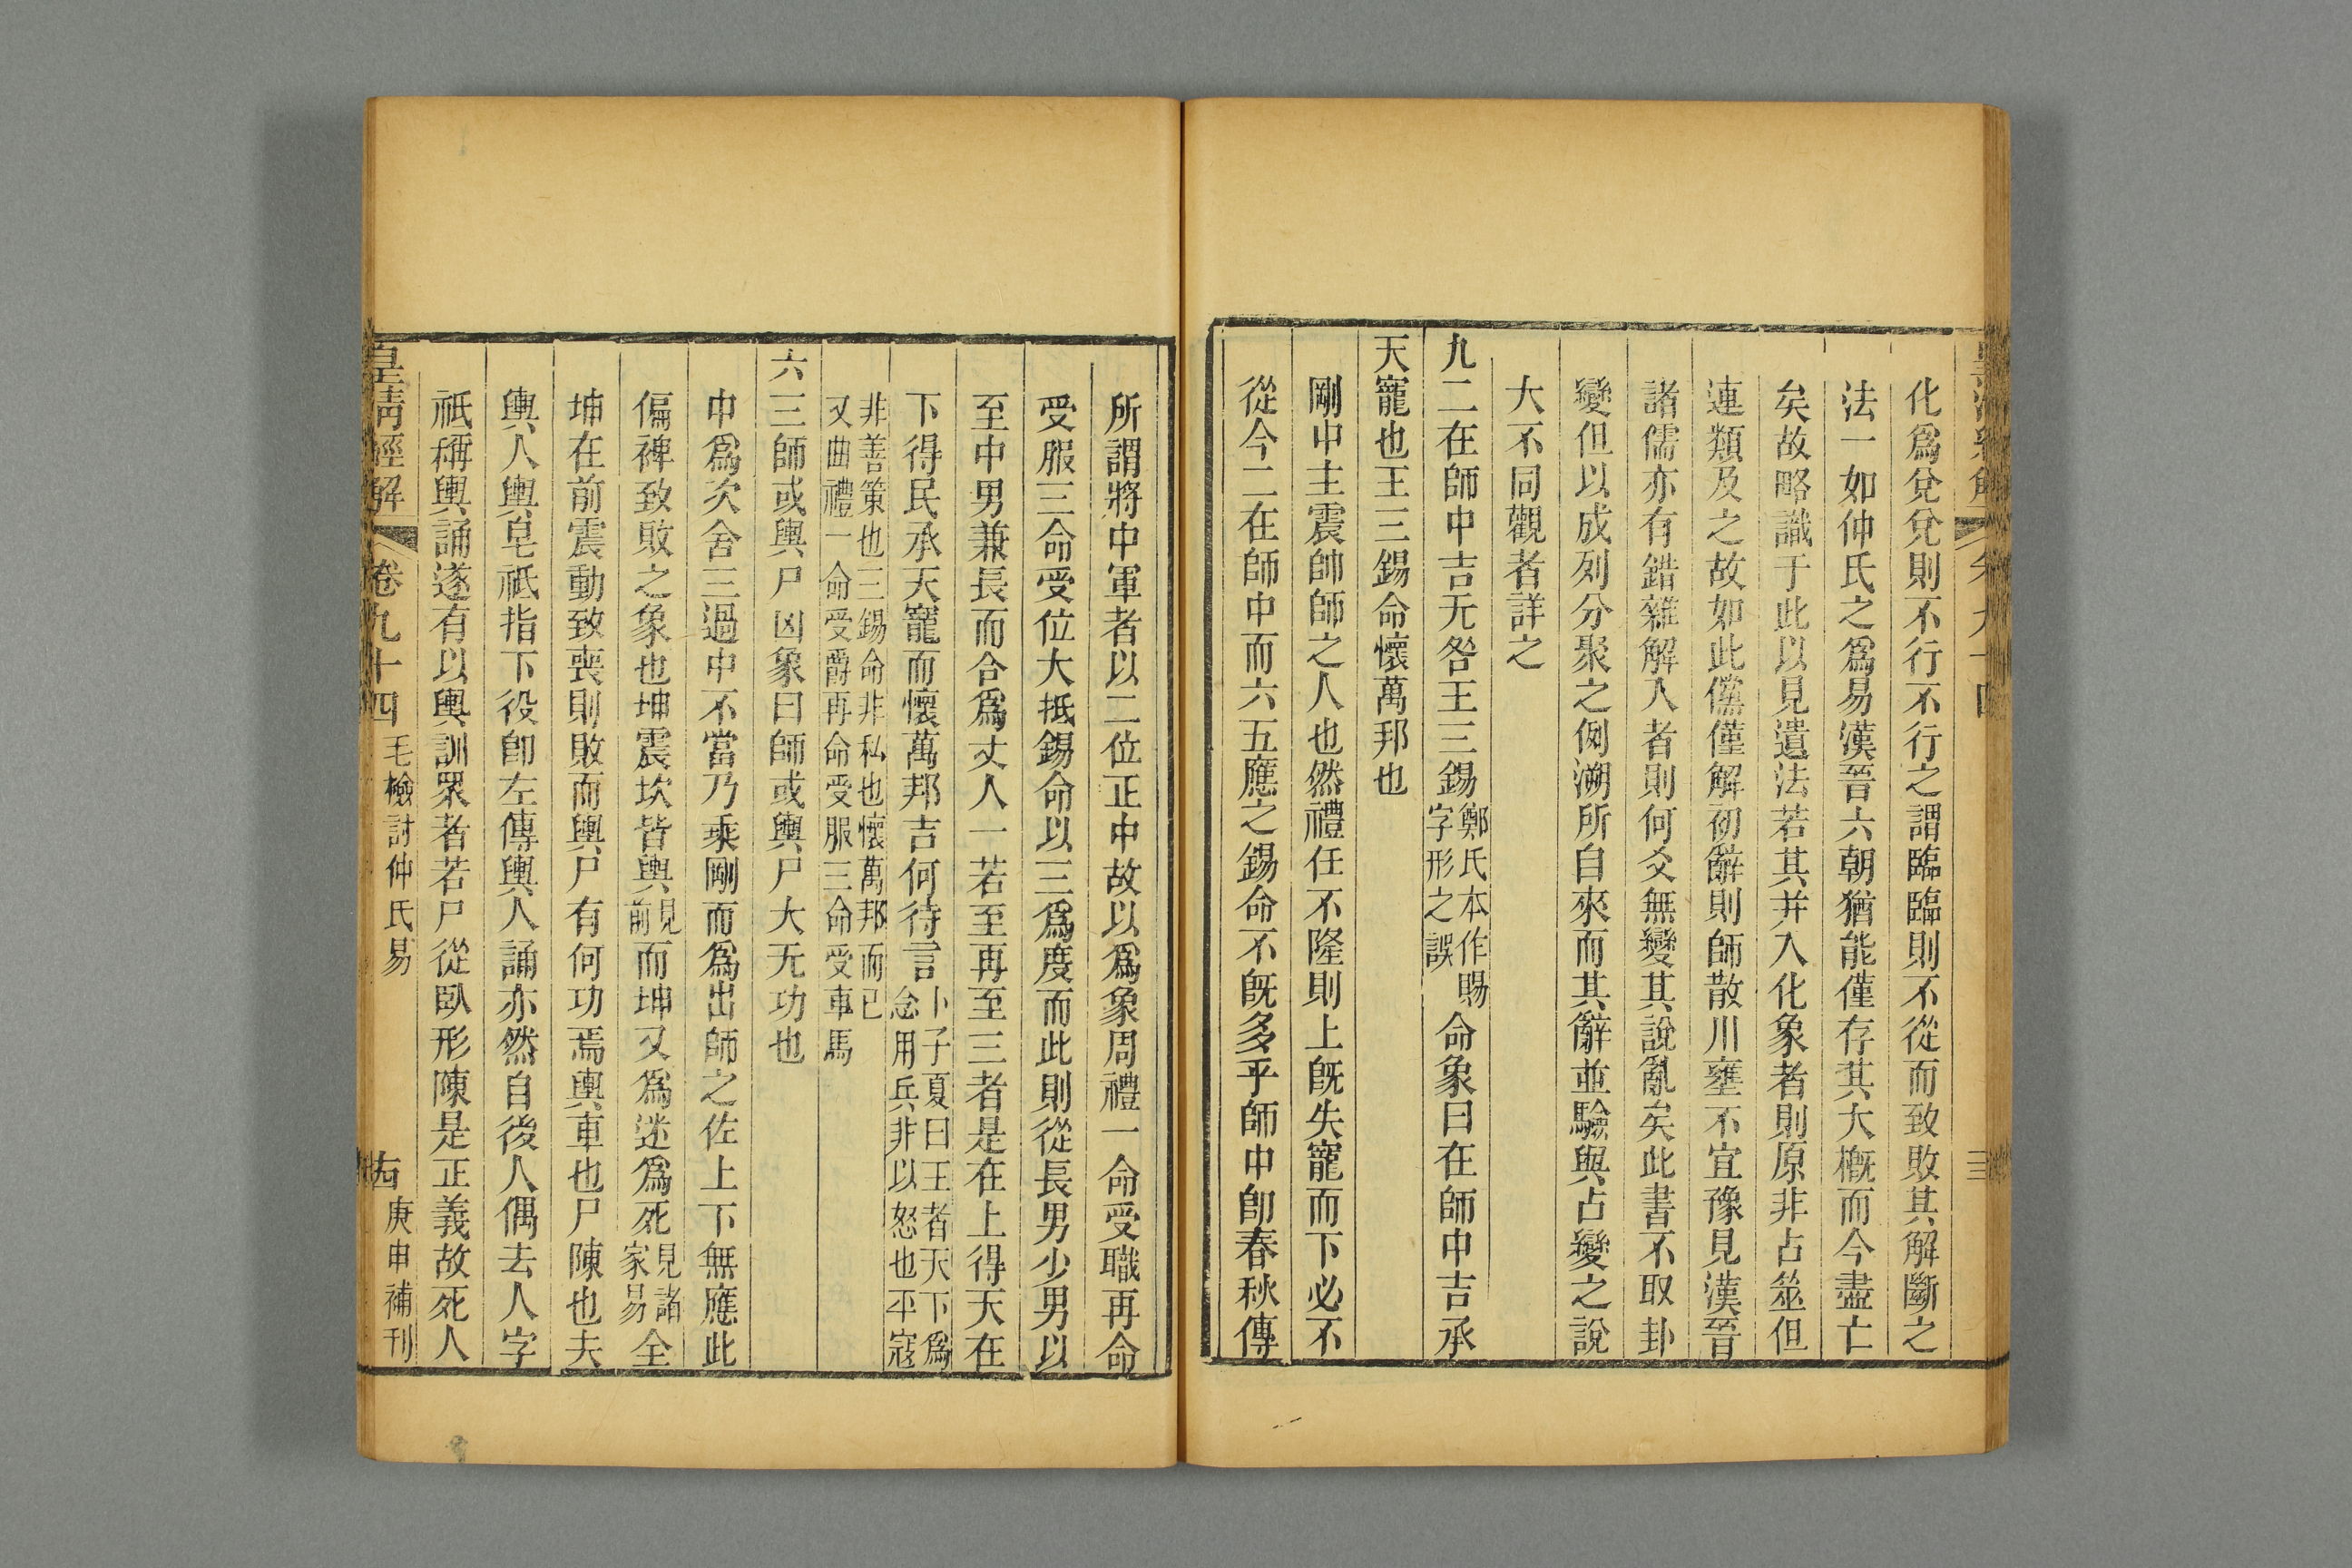 化爲兌兌則不行不行之謂臨臨則不從而致敗其解斷之
法一如仲氏之爲易漢晉六朝猶能僅存其大槪而今盡亡
矣故略識于此以見遺法若其并入化象者則原非占筮但
連類及之故如此儻僅解初辭則師散川壅不宜豫見漢晉
諸儒亦有錯雜解入者則何爻無變其說亂矣此書不取卦
變但以成列分聚之例溯所自來而其辭並驗與占變之說
大不同觀者詳之
九二在師中吉无咎王三錫鄭氏本作賜字形之誤命象曰在師中吉承
天寵也王三錫命懷萬邦也
剛中主震帥師之人也然禮任不隆則上旣失寵而下必不
從今二在師中而六五應之錫命不旣多乎師中卽春秋傳
所謂將中軍者以二位正中故以爲象周禮一命受職再命
受服三命受位大抵錫命以三爲度而此則從長男少男以
至中男兼長而合爲丈人一若至再至三者是在上得天在
下得民承天寵而懷萬邦吉何待言卜子夏曰王者天下爲念用兵非以怒也平寇
非善策也三錫命非私也懷萬邦而已又曲禮一命受爵再命受服三命受車馬
六三師或輿尸凶象曰師或輿尸大无功也
中爲次舍三過中不當乃乘剛而爲出師之佐上下無應此
偏裨致敗之象也坤震坎皆輿見前而坤又爲迷爲死見諸家易全
坤在前震動致喪則敗而輿尸有何功焉輿車也尸陳也夫
輿人輿皂祇指下役卽左傳輿人誦亦然自後人偶去人字
祇稱輿誦遂有以輿訓眾者若尸從臥形陳是正義故死人
皇清經解 卷九十四 毛檢討仲氏易 庚申補刊